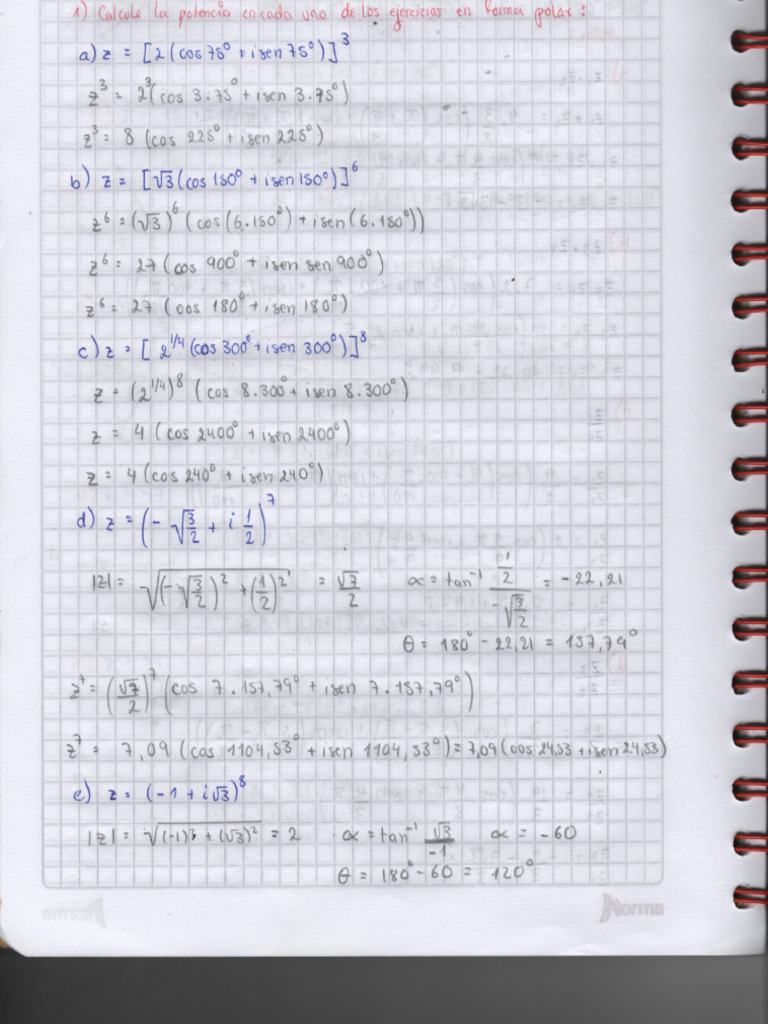 1) Calcule la potencia en cada uno de los ejercicios en forma polar:
a) z = [2 (cos 75° + i sen 75°)]³
z³ = 2³(cos 3.75° + i sen 3.75°)
z³ = 8 (cos 225° + i sen 225°)
b) z = [√3 (cos 150° + i sen 150°)]⁶
z⁶ = (√3)⁶ (cos(6.150°) + i sen (6.150°))
z⁶ = 27 (cos 900° + i sen sen 900°)
z⁶ = 27 (cos 180° + i sen 180°)
c) z = [2^1/4 (cos 300° + i sen 300°)]⁸
z = (2^1/4)⁸ (cos 8.300° + i sen 8.300°)
z = 4 (cos 2400° + i sen 2400°)
z = 4 (cos 240° + i sen 240°)
d) z = (-√(3/2) + i 1/2)⁷
|z| = √((-√(3/2))² + (1/2)²) = √7/2 α = tan⁻¹ (1/2)/(-√(3/2)) = -22,21
θ = 180° - 22,21 = 157,79°
z⁷ = (√7/2)⁷ (cos 7.157,79° + i sen 7.157,79°)
z⁷ = 7,09 (cos 1104,53° + i sen 1104,53°) = 7,09 (cos 24,53 + i sen 24,53)
e) z = (-1 + i√3)⁸
|z| = √((-1)² + (√3)²) = 2 α = tan⁻¹ √3/-1 α = -60
θ = 180° - 60 = 120°
Norma